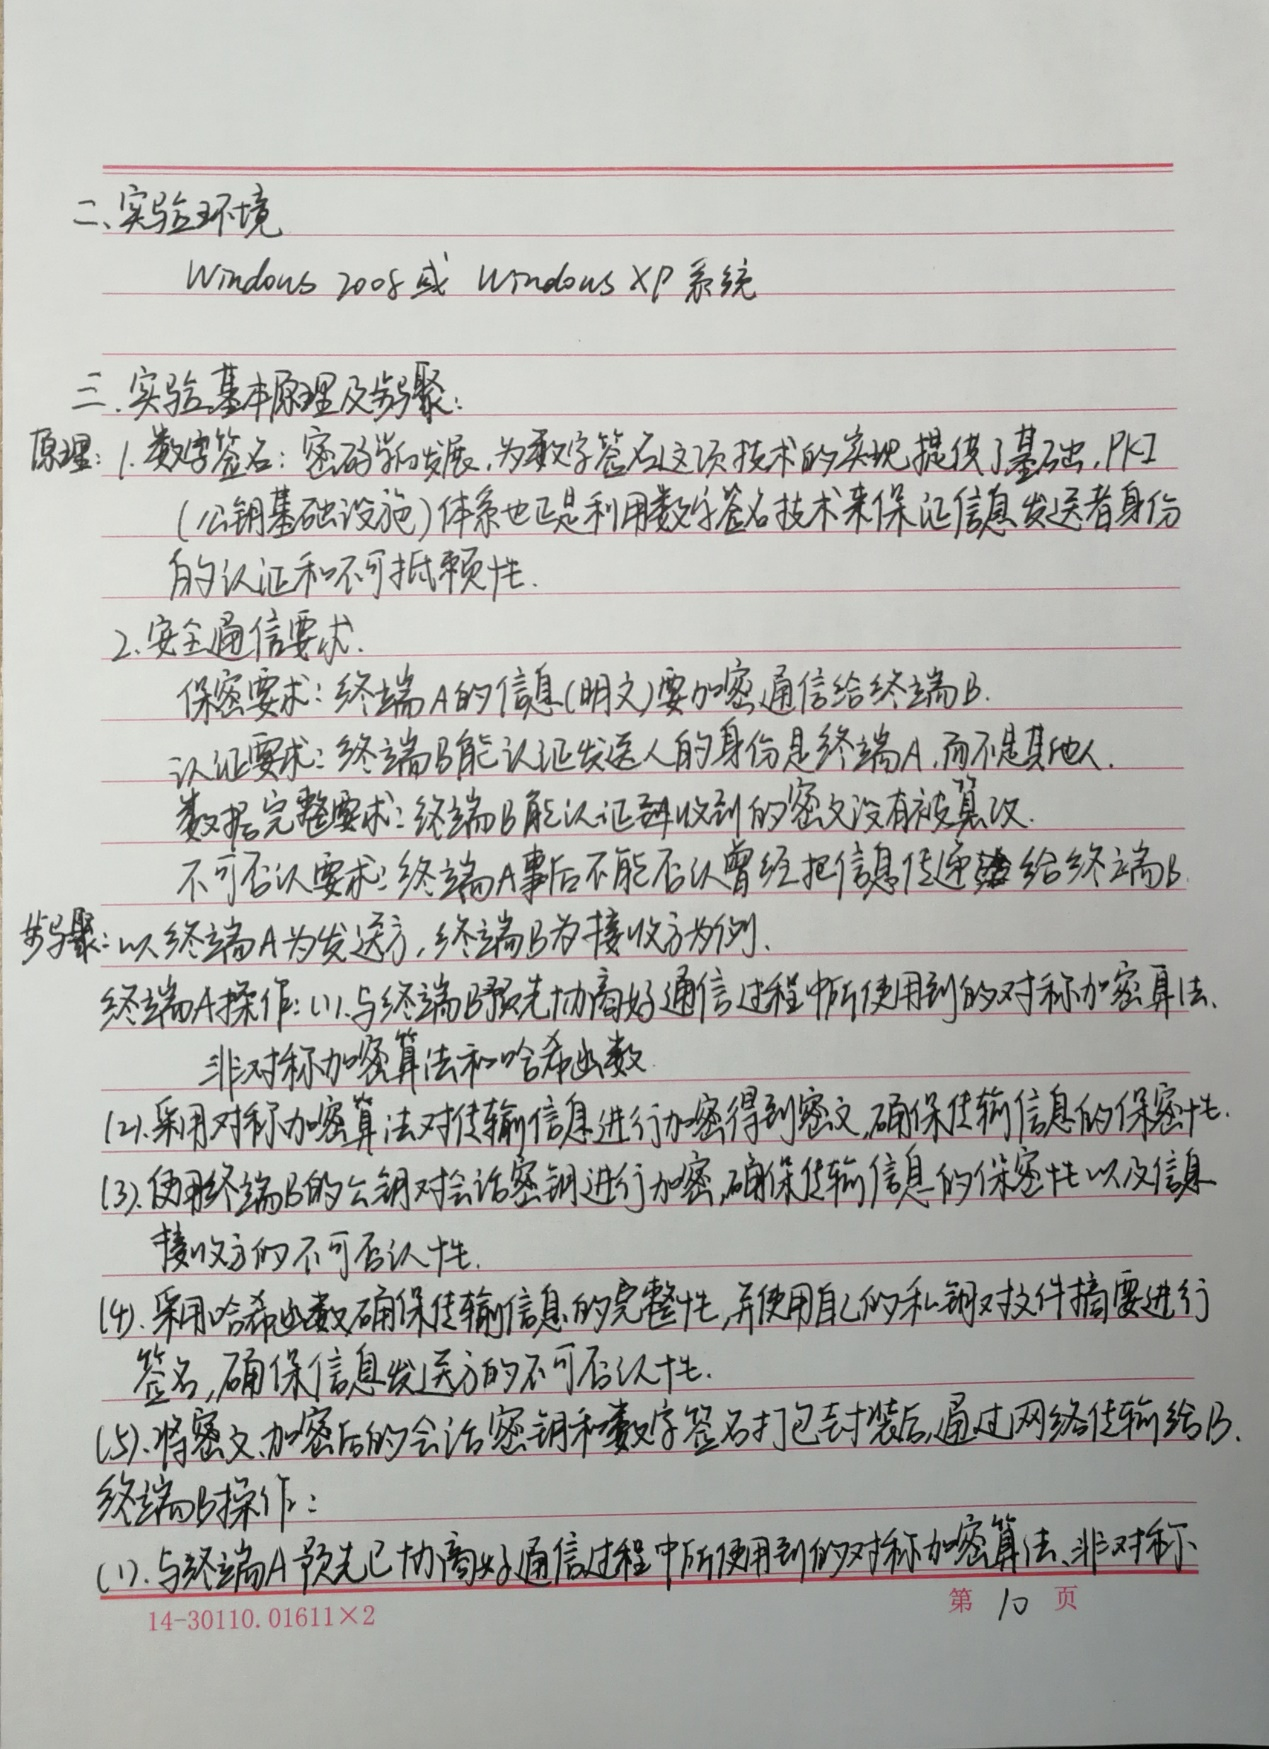 二、实验环境
Windows 2008或 Windows XP 系统
三.实验基本原理及步骤:
原理:1.数字签名:密码学的发展,为数字签名这项技术的实现提供了基础,PKI
(公钥基础设施)体系也正是利用数字签名技术来保证信息发送者身份
的认证和不可抵赖性.
2.安全通信要求.
保密要求:终端A的信息(明文)要加密通信给终端B.
认证要求:终端B能认证发送人的身份是终端A,而不是其他人.
数据完整要求:终端B能认证收到的密文没有被篡改.
不可否认要求:终端A事后不能否认曾经把信息传递给终端B.
步骤:以终端A为发送方,终端B为接收方为例.
终端A操作:(1).与终端B预先协商好通信过程中所使用到的对称加密算法、
非对称加密算法和哈希函数
(2).采用对称加密算法对传输信息进行加密得到密文,确保传输信息的保密性.
(3).使用终端B的公钥对会话密钥进行加密,确保传输信息的保密性以及信息
接收方的不可否认性.
(4).采用哈希函数确保传输信息的完整性,并使用自己的私钥对文件摘要进行
签名,确保信息发送方的不可否认性.
(5).将密文、加密后的会话密钥和数字签名打包封装后,通过网络传输给B.
终端B操作:
(1).与终端A预先已协商好通信过程中所使用到的对称加密算法、非对称
14-30110.01611×2
第 10 页